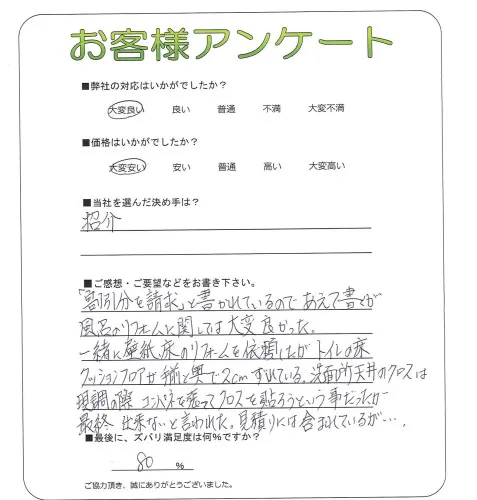 お客様アンケート
■弊社の対応はいかがでしたか？
大変良い 良い 普通 不満 大変不満
■価格はいかがでしたか？
大変安い 安い 普通 高い 大変高い
■当社を選んだ決め手は？
紹介
■ご感想・ご要望などをお書き下さい。
「割引分を請求」と書かれているのであえて書くが
風呂のリフォームに関しては大変良かった。
一緒に壁紙、床のリフォームを依頼したがトイレの床
クッションフロアが手前と奥で2cmずれている。洗面所天井のクロスは
現調の際コンパネを張ってクロスを貼ろうという事だったが
最終出来ないと言われた。見積りには含まれているが…。
■最後に、ズバリ満足度は何%ですか？
80 %
ご協力頂き、誠にありがとうございました。